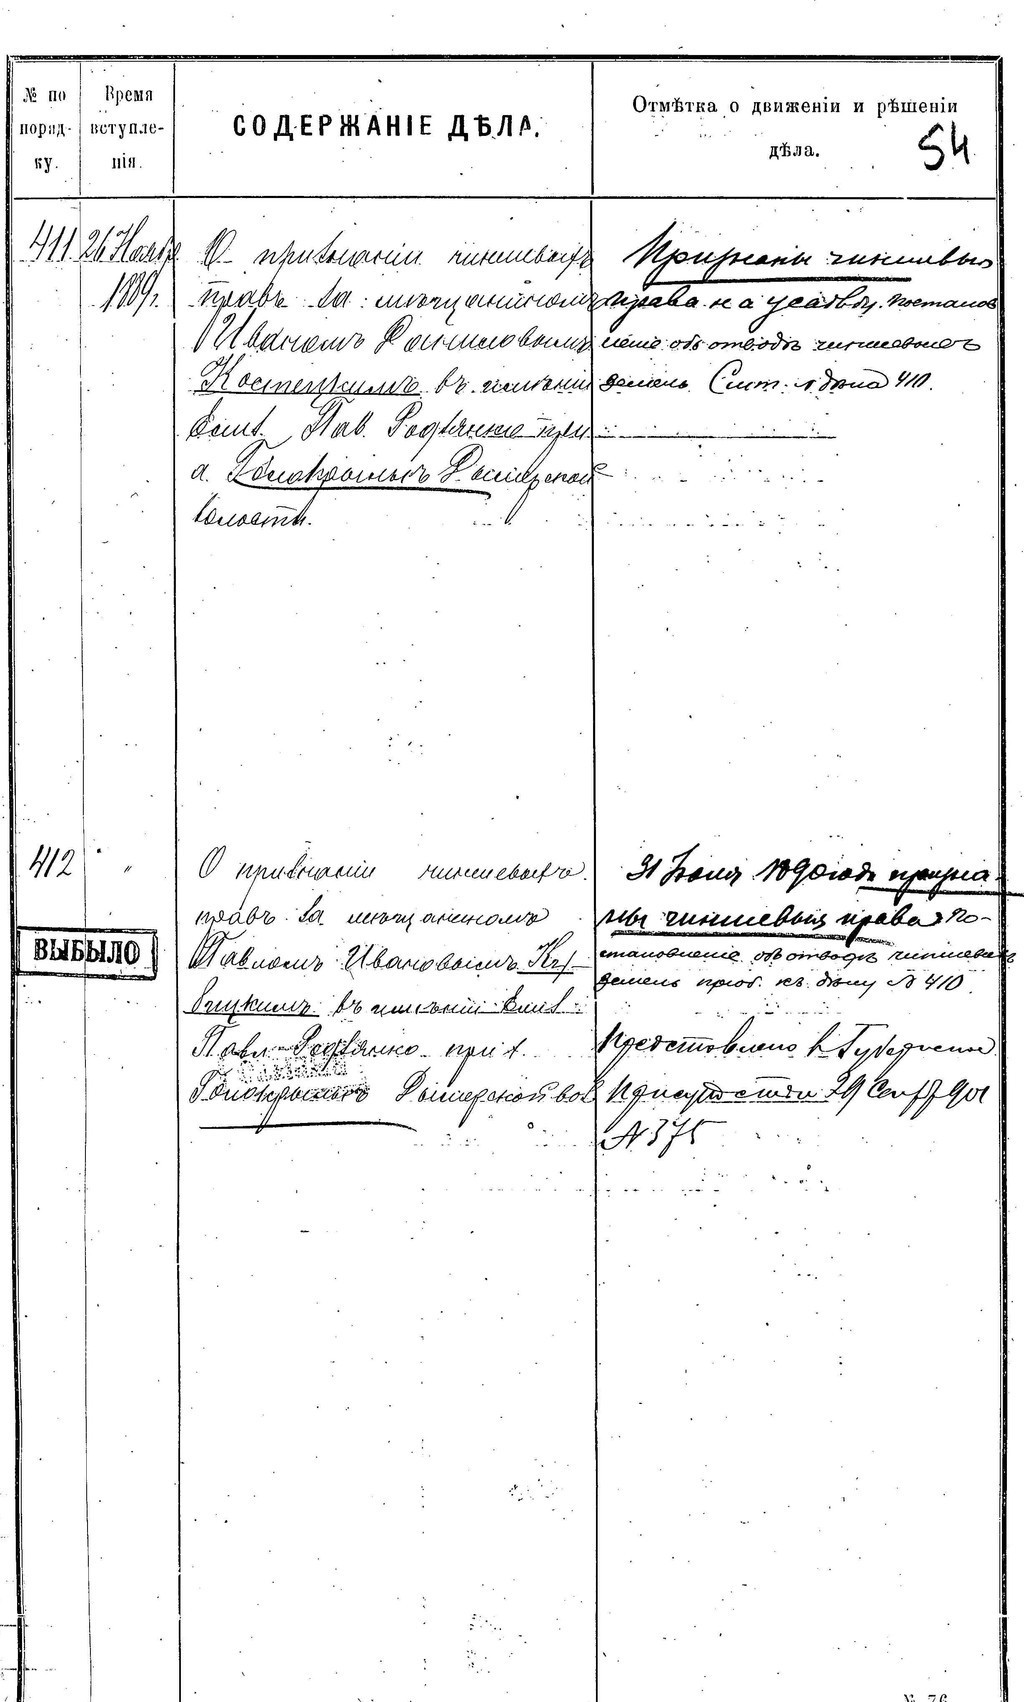 № по порядку.
Время вступленія.
СОДЕРЖАНІЕ ДѢЛА.
Отмѣтка о движеніи и рѣшеніи
дѣла.
54
411 26 Ноябр.
1889 г.
О признаніи чиншевыхъ
правъ за мѣщаниномъ
Иваномъ Даниловымъ
Костецкимъ въ имѣніи
Павл. Родзянко при
Дымерской
волости.
Признаны чиншевыя
права на усадьбу. Постанов
леніе объ отводѣ чиншевыхъ
земель см. дѣла 410.
412 "
О признаніи чиншевыхъ
правъ за мѣщаниномъ
Павломъ Ивановымъ
въ имѣніи
Павл. Родзянко при
Дымерской вол
ВЫБЫЛО
31 Іюля 1890 года призна-
ны чиншевыя права По-
становленіе объ отводѣ чиншевыхъ
земель къ дѣлу № 410
Представлено въ Губернское
Присутствіе 29 901
№ 375
№ 76